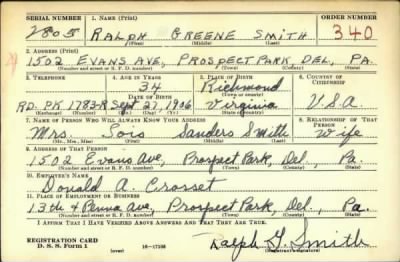 SERIAL NUMBER 1. NAME (Print) ORDER NUMBER
2805 RALPH GREENE SMITH 340
(First) (Middle) (Last)
2. ADDRESS (Print)
1502 EVANS AVE., PROSPECT PARK, DEL., PA.
(Number and street or R. F. D. number) (Town) (County) (State)
3. TELEPHONE 4. AGE IN YEARS 5. PLACE OF BIRTH 6. COUNTRY OF CITIZENSHIP
34 Richmond
DATE OF BIRTH (Town or county)
RD. PK 1783-R Sept 27, 1906 Virginia U.S.A
(Exchange) (Number) (Mo.) (Day) (Yr.) (State or country)
7. NAME OF PERSON WHO WILL ALWAYS KNOW YOUR ADDRESS 8. RELATIONSHIP OF THAT PERSON
Mrs. Lois Sanders Smith Wife
(Mr., Mrs., Miss) (First) (Middle) (Last)
9. ADDRESS OF THAT PERSON
1502 Evans Ave, Prospect Park, Del., Pa.
(Number and street or R. F. D. number) (Town) (County) (State)
10. EMPLOYER'S NAME
Donald A. Crosset
11. PLACE OF EMPLOYMENT OR BUSINESS
13th & Penna Ave, Prospect Park, Del., Pa.
(Number and street or R. F. D. number) (Town) (County) (State)
I AFFIRM THAT I HAVE VERIFIED ABOVE ANSWERS AND THAT THEY ARE TRUE.
REGISTRATION CARD
D. S. S. Form 1 (over) 16—17105 Ralph G. Smith
(Registrant's signature)